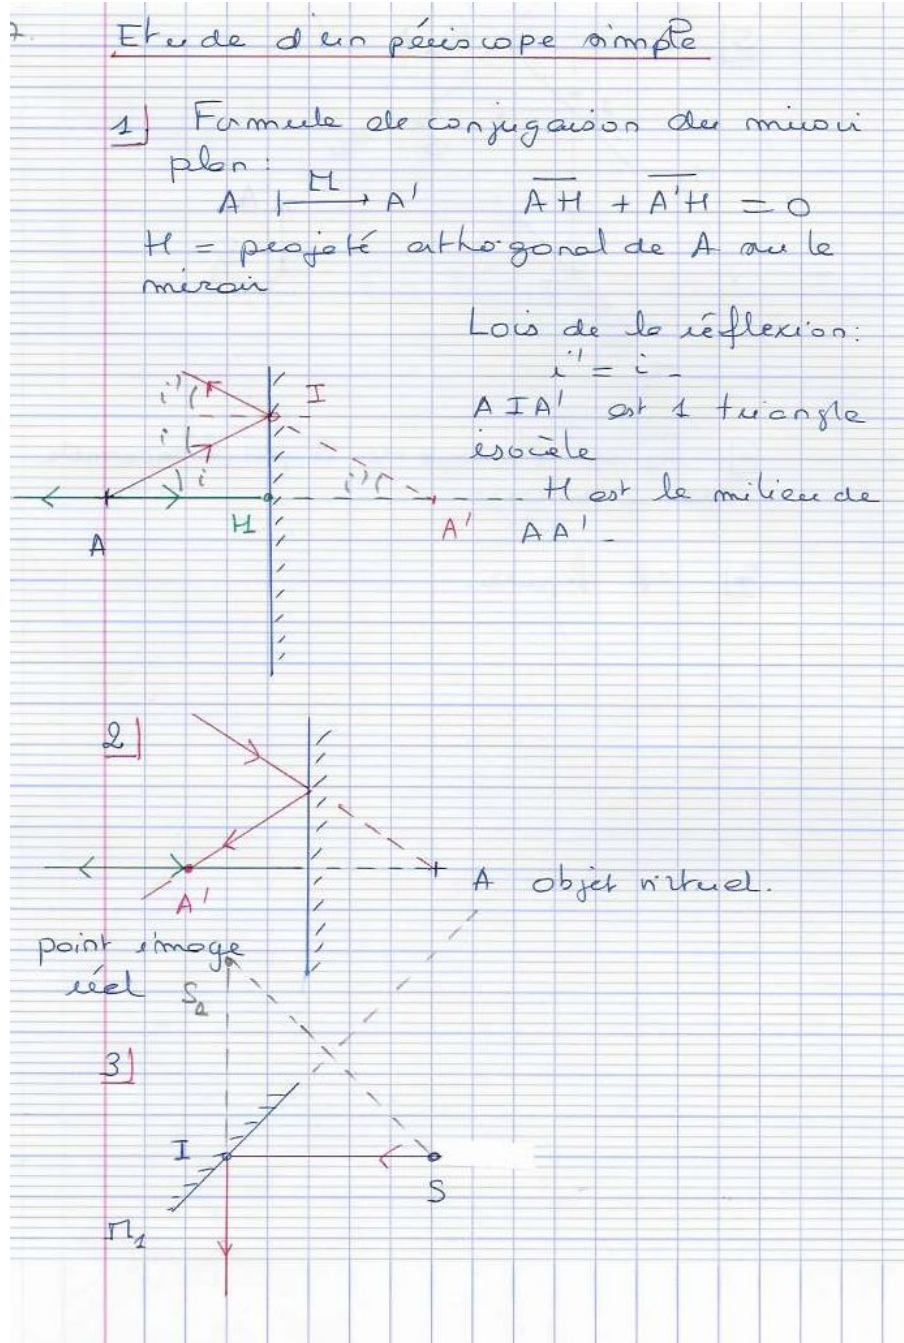 7.
Etude d'un périscope simple
1) Formule de conjugaison du miroir
plan :
A M A' AH + A'H = 0
H = projeté orthogonal de A sur le
miroir
Lois de la réflexion :
i' = i -
AIA' est 1 triangle
isocèle
H est le milieu de
AA' -
i' I
i
i i'
A H A'
2)
A objet virtuel.
A'
point image
réel
S2
3)
I
S
M1